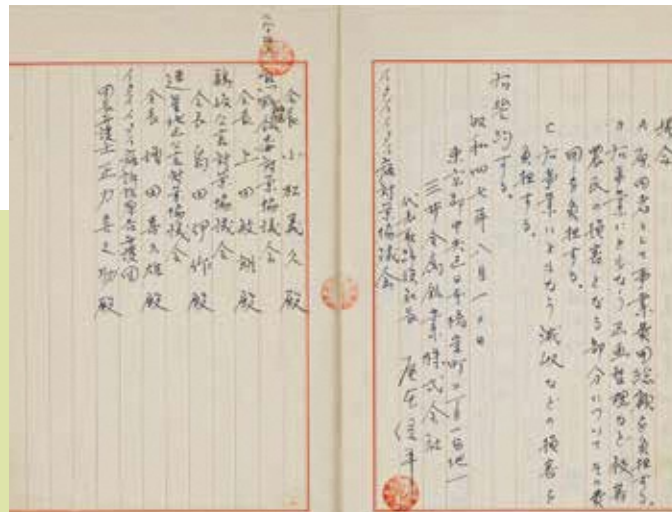 場合
A 原因者として事業費用総額を負担する。
B 右事業にともなう区画整理など被害
農民の損害となる部分についてその費
用を負担する。
C 右事業にともなう減収などの損害を
負担する。
右誓約する。
昭和四七年八月一〇日
東京都中央区日本橋室町二丁目一番地一
三井金属鉱業株式会社
代表取締役社長 尾本信平
イタイイタイ病対策協議会
会長 小松義久 殿
鉱害対策協議会
会長 上田 殿
公害対策協議会
会長 島田伊作 殿
速星地区公害対策協議会
会長 増田喜久雄 殿
イタイイタイ病訴訟弁護団
団長弁護士 正力喜之助 殿